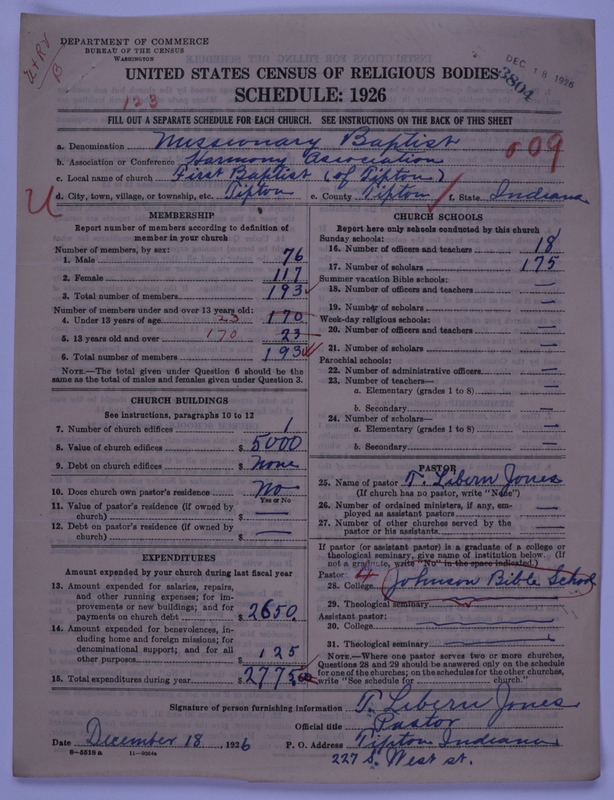 DEPARTMENT OF COMMERCE
BUREAU OF THE CENSUS
WASHINGTON
DEC 18 1926
3804
UNITED STATES CENSUS OF RELIGIOUS BODIES
SCHEDULE: 1926
123
FILL OUT A SEPARATE SCHEDULE FOR EACH CHURCH. SEE INSTRUCTIONS ON THE BACK OF THIS SHEET
a. Denomination Missionary Baptist
009
b. Association or Conference Harmony Association
c. Local name of church First Baptist (of Tipton)
d. City, town, village, or township, etc. Tipton e. County Tipton f. State Indiana
U
MEMBERSHIP
Report number of members according to definition of
member in your church
Number of members, by sex:
1. Male 76
2. Female 117
3. Total number of members 193
Number of members under and over 13 years old:
4. Under 13 years of age 23 170
5. 13 years old and over 170 23
6. Total number of members 193
NOTE.—The total given under Question 6 should be
same as the total of males and females given under Question 3.
CHURCH BUILDINGS
See instructions, paragraphs 10 to 12
7. Number of church edifices 1
8. Value of church edifices $ 5000
9. Debt on church edifices $ none
10. Does church own pastor's residence No
Yes or No
11. Value of pastor's residence (if owned by
church) $ —
12. Debt on pastor's residence (if owned by
church) $ —
EXPENDITURES
Amount expended by your church during last fiscal year
13. Amount expended for salaries, repairs,
and other running expenses; for im-
provements or new buildings; and for
payments on church debt $ 2650
14. Amount expended for benevolences, in-
cluding home and foreign missions; for
denominational support; and for all
other purposes $ 125
15. Total expenditures during year $ 2775.00
CHURCH SCHOOLS
Report here only schools conducted by this church
Sunday schools:
16. Number of officers and teachers 18
17. Number of scholars 175
Summer vacation Bible schools:
18. Number of officers and teachers —
19. Number of scholars —
Week-day religious schools:
20. Number of officers and teachers —
21. Number of scholars —
Parochial schools:
22. Number of administrative officers —
23. Number of teachers—
a. Elementary (grades 1 to 8) —
b. Secondary —
24. Number of scholars—
a. Elementary (grades 1 to 8) —
b. Secondary —
PASTOR
25. Name of pastor T. Libern Jones
(If church has no pastor, write "None")
26. Number of ordained ministers, if any, em-
ployed as assistant pastors —
27. Number of other churches served by the
pastor or his assistants —
If pastor (or assistant pastor) is a graduate of a college or
theological seminary, give name of institution below. (If
not a graduate, write "No" in the space indicated.)
Pastor: 4
28. College Johnson Bible School
29. Theological seminary
Assistant pastor:
30. College
31. Theological seminary
NOTE.—Where one pastor serves two or more churches,
Questions 28 and 29 should be answered only on the schedule
for one of the churches; on the schedules for the other churches,
write "See schedule for church."
Signature of person furnishing information T. Libern Jones
Official title Pastor
Date December 18, 1926 P. O. Address Tipton Indiana
8—5518 a 11—9264a
227 S. West st.